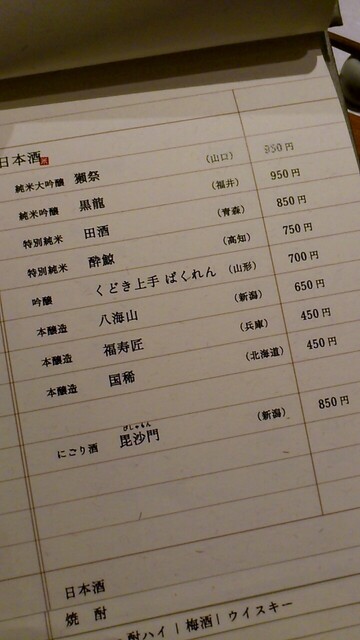 日本酒
純米大吟醸 獺祭 (山口) 950円
純米吟醸 黒龍 (福井) 950円
特別純米 田酒 (青森) 850円
特別純米 酔鯨 (高知) 750円
吟醸 くどき上手 ばくれん (山形) 700円
本醸造 八海山 (新潟) 650円
本醸造 福寿匠 (兵庫) 450円
本醸造 国稀 (北海道) 450円
びしゃもん
にごり酒 毘沙門 (新潟) 850円
日本酒
焼 酎
酎ハイ | 梅酒 | ウイスキー